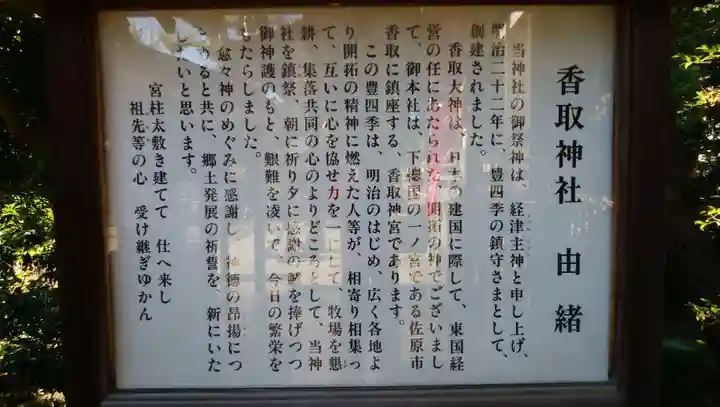 香取神社 由緒
当神社の御祭神は、経津主神と申し上げ、
明治二十二年に、豊四季の鎮守さまとして、
創建されました。
香取大神は、日本の建国に際して、東国経
営の任にあたられた、開拓の神でございまし
て、御本社は、下総国の一ノ宮である佐原市
香取に鎮座する、香取神宮であります。
この豊四季は、明治のはじめ、広く各地よ
り開拓の精神に燃えた人等が、相寄り相集っ
て、互いに心を協せ力を一にして、牧場を懇
耕、集落共同の心のよりどころとして、当神
社を鎮祭、朝に祈り夕に感謝の誠を捧げつつ
御神護のもと、艱難を凌いで、今日の繁栄を
もたらしました。
愈々神のめぐみに感謝し、神徳の昂揚につ
とめると共に、郷土発展の祈誓を、新にいた
したいと思います。
宮柱太敷き建てて 仕へ来し
祖先等の心 受け継ぎゆかん